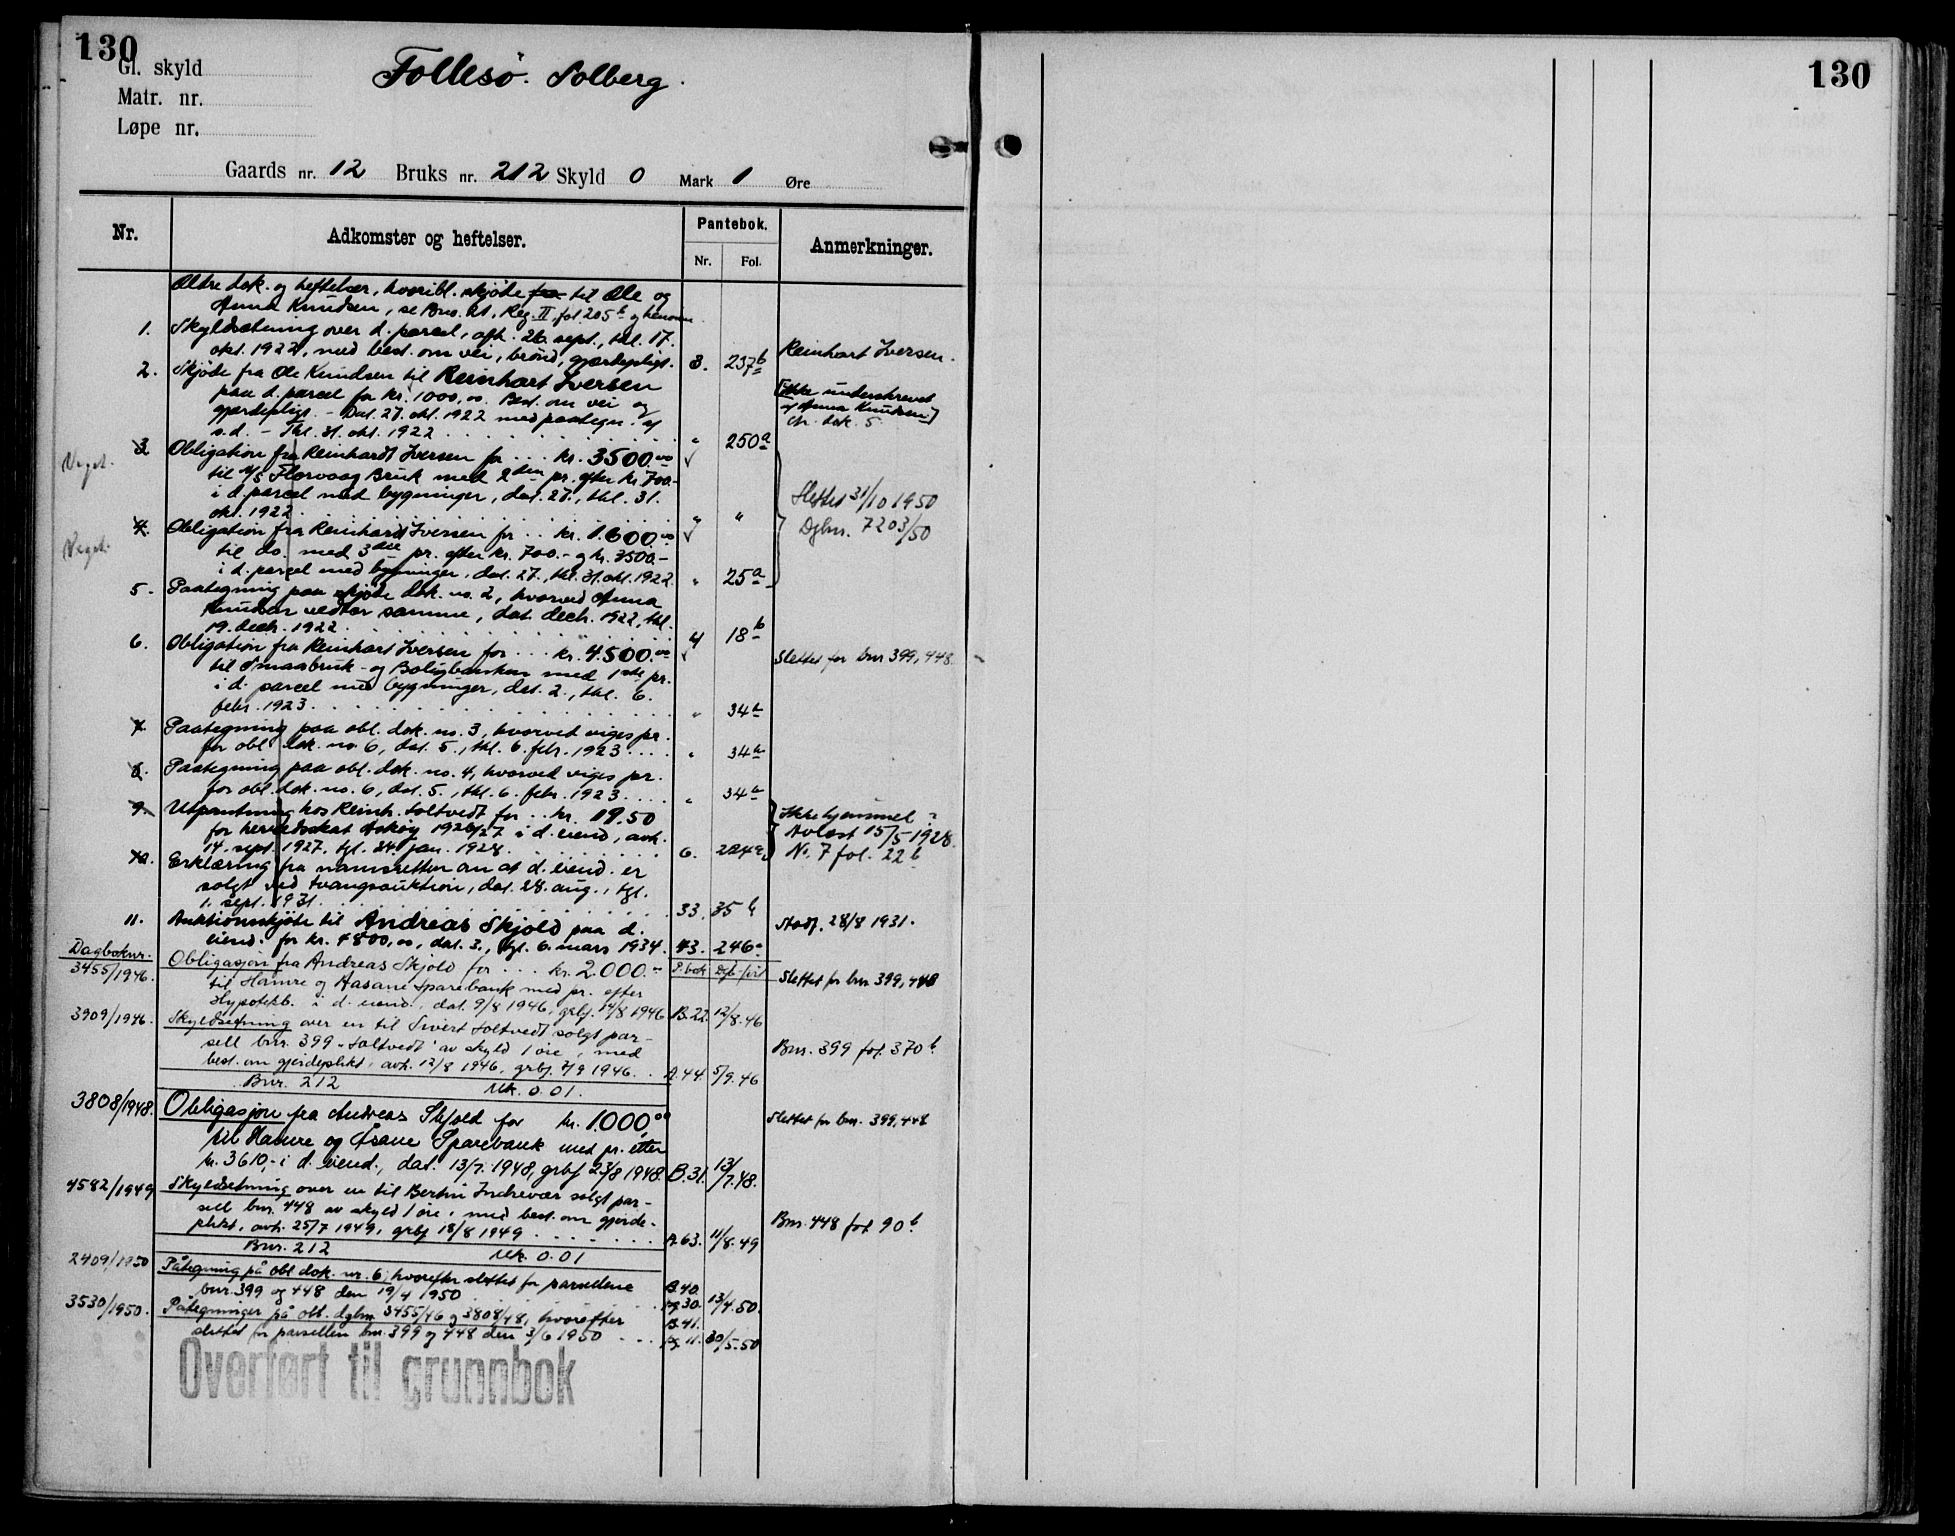 130
Gl. skyld
Follesö. Solberg.
Matr. nr.
Løpe nr.
Gaards nr. 12 Bruks nr. 212 Skyld 0 Mark 1 Øre
Nr.
Adkomster og heftelser.
Pantebok.
Nr. Fol.
Anmerkninger.
Ældre dok. og heftelser, hvoribl. skjöte fra til Ole og
Anna Knudsen, se Bno. 21, Reg. II, fol. 205 b og
1. Skyldsætning over d. parcel, afh. 26. sept., thl. 17.
okt. 1922, med best. om vei, brönd, gjærdepligt. 3. 237 b Reinhart Iversen.
2. Skjöte fra Ole Knudsen til Reinhart Iversen
paa d. parcel for kr. 1000,00. Best. om vei og
gjærdepligt. - Dat. 27. okt. 1922 med paategn. af
s.d. - Thl. 31. okt. 1922 " 250 a
[Ikke underskrevet
af Anna Knudsen]
cfr. dok. 5
Veget.
3 Obligation fra Reinhardt Iversen for ... kr. 3500.00
til A/S Florvaag Bruk med 2den pr. efter kr. 700.-
i d. parcel med bygninger, dat. 27., thl. 31.
okt. 1922 " "
Slettet 31/10 1950
Dgbnr. 7203/50
Veget.
4. Obligation fra Reinhardt Iversen for .. kr. 1.600.00
til do. med 3die pr. efter kr. 700.- og kr. 3500.-
i d. parcel med bygninger, dat. 27., thl. 31. okt. 1922. " 25 a
5. Paategning paa skjöte dok. no. 2, hvorved Anna
Knudsen vedtar samme, dat. decbr. 1922, thl.
19. decbr. 1922 4 18 b
6. Obligation fra Reinhart Iversen for ... kr. 4.500.00
til Smaabruk- og Boligbanken med 1ste pr.
i d. parcel med bygninger, dat. 2., thl. 6.
febr. 1923 " 34 a
Slettet for bnr 399, 448.
7. Paategning paa obl. dok. no. 3, hvorved viges pr.
for obl. dok. no. 6, dat. 5., thl. 6. febr. 1923 .... " 34 a
8. Paategning paa obl. dok. no. 4, hvorved viges pr.
for obl. dok. no. 6, dat. 5., thl. 6. febr. 1923 .... " 34 a
9. Utpantning hos Reinh. Soltvedt for .. kr. 19.50
for herredsskat Askøy 1926/27 i d. eiend., avh.
14. sept. 1927, tgl. 24. jan. 1928 6. 224 a
Ikke hjemmel
Avlæst 15/5 1928.
No. 7 fol. 22 b
10. Erklæring fra namsretten om at d. eiend. er
solgt ved tvangsauktion, dat. 28. aug., tgl.
1. sept. 1931. 33. 35 b
11. Auktionsskjöte til Andreas Skjold paa d.
eiend. for kr. 4800,00, dat. 3., tgl. 6. mars 1934. 43. 246 a
Stadf. 28/8 1931.
Dagboknr.
P. bok
3455/1946. Obligasjon fra Andreas Skjold for ... kr. 2.000.-
til Hamre og Aasane Sparebank med pr. efter
Hypotekb. i d. eiend., dat. 9/8 1946, grbf. 14/8 1946 B.22. 12/8.46
Slettet for bnr 399, 448
3909/1946. Skyldsetning over en til Sivert Soltvedt solgt par-
sell bnr. 399 "Soltvedt" av skyld 1 øre, med
best. om gjerdeplikt, avh. 12/8 1946, grbf. 7/9 1946. . A.44. 5/9.46
Bnr. 399 fol. 370 b.
Bnr. 212 Mk. 0.01.
3808/1948. Obligasjon fra Andreas Skjold for kr. 1.000,00
til Hamre og Åsane Sparebank med pr. etter
kr. 3610,- i d. eiend., dat. 13/7 1948, grbf 23/8 1948. B.31. 13/7.48.
Slettet for bnr. 399, 448
4582/1949 Skyldsetning over en til Bertin Indrevær solgt par-
sell bnr. 448 av skyld 1 øre, med best. om gjerde-
plikt, avh. 25/7 1949, grbf 18/8 1949 A.63. 11/8.49
Bnr. 448 fol 90 b.
Bnr. 212 Mk. 0.01
2409/1950 Påtegning på obl dok. nr. 6, hvorefter slettet for parsellene
bnr. 399 og 448 den 19/4 1950 B.40. pg 30 13/4.50.
3530/1950. Påtegninger på obl. dgbnr 3455/46 og 3808/48, hvorefter
slettet for parsellen bnr. 399 og 448 den 3/6 1950 ... B.41. pg 11. 30/5-50
Overført til grunnbok
130